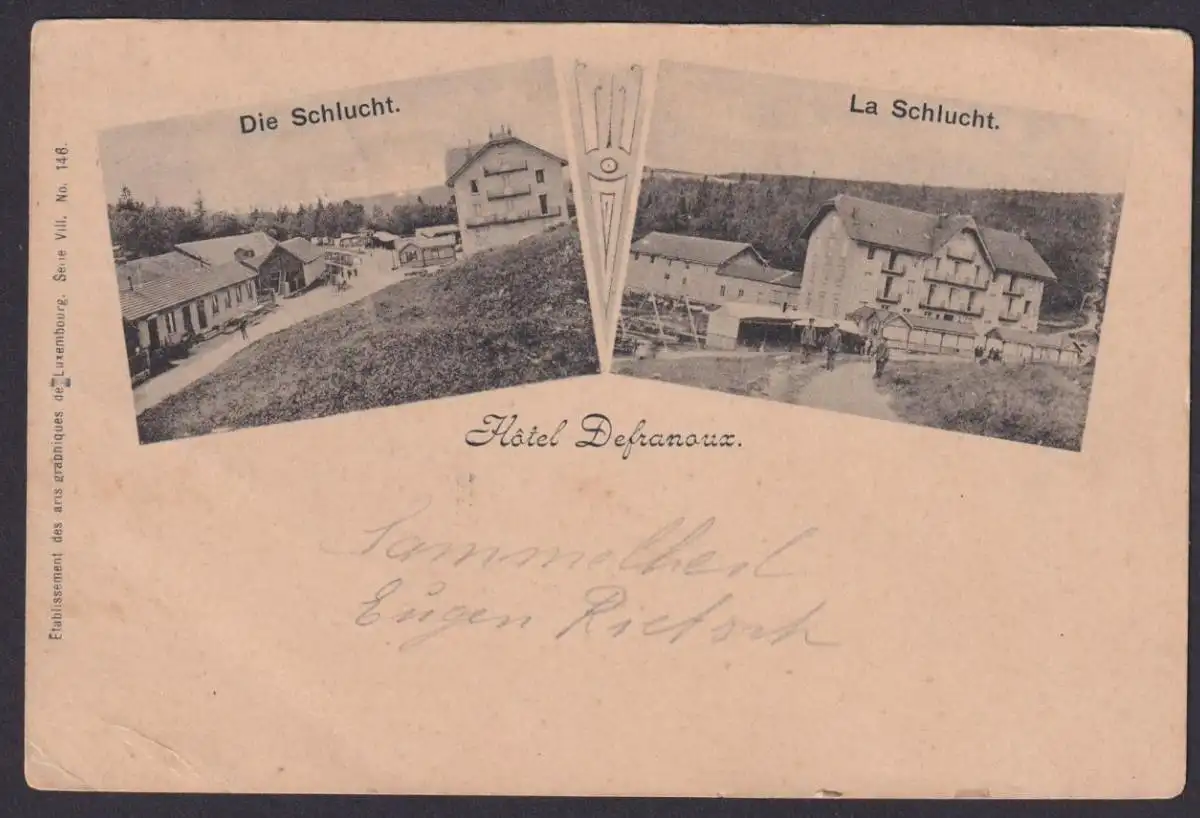 Die Schlucht.
La Schlucht.
Hôtel Defranoux.
Sammeltheil
Eugen Rietsch
Etablissement des arts graphiques de Luxembourg. Serie VIII. No. 146.